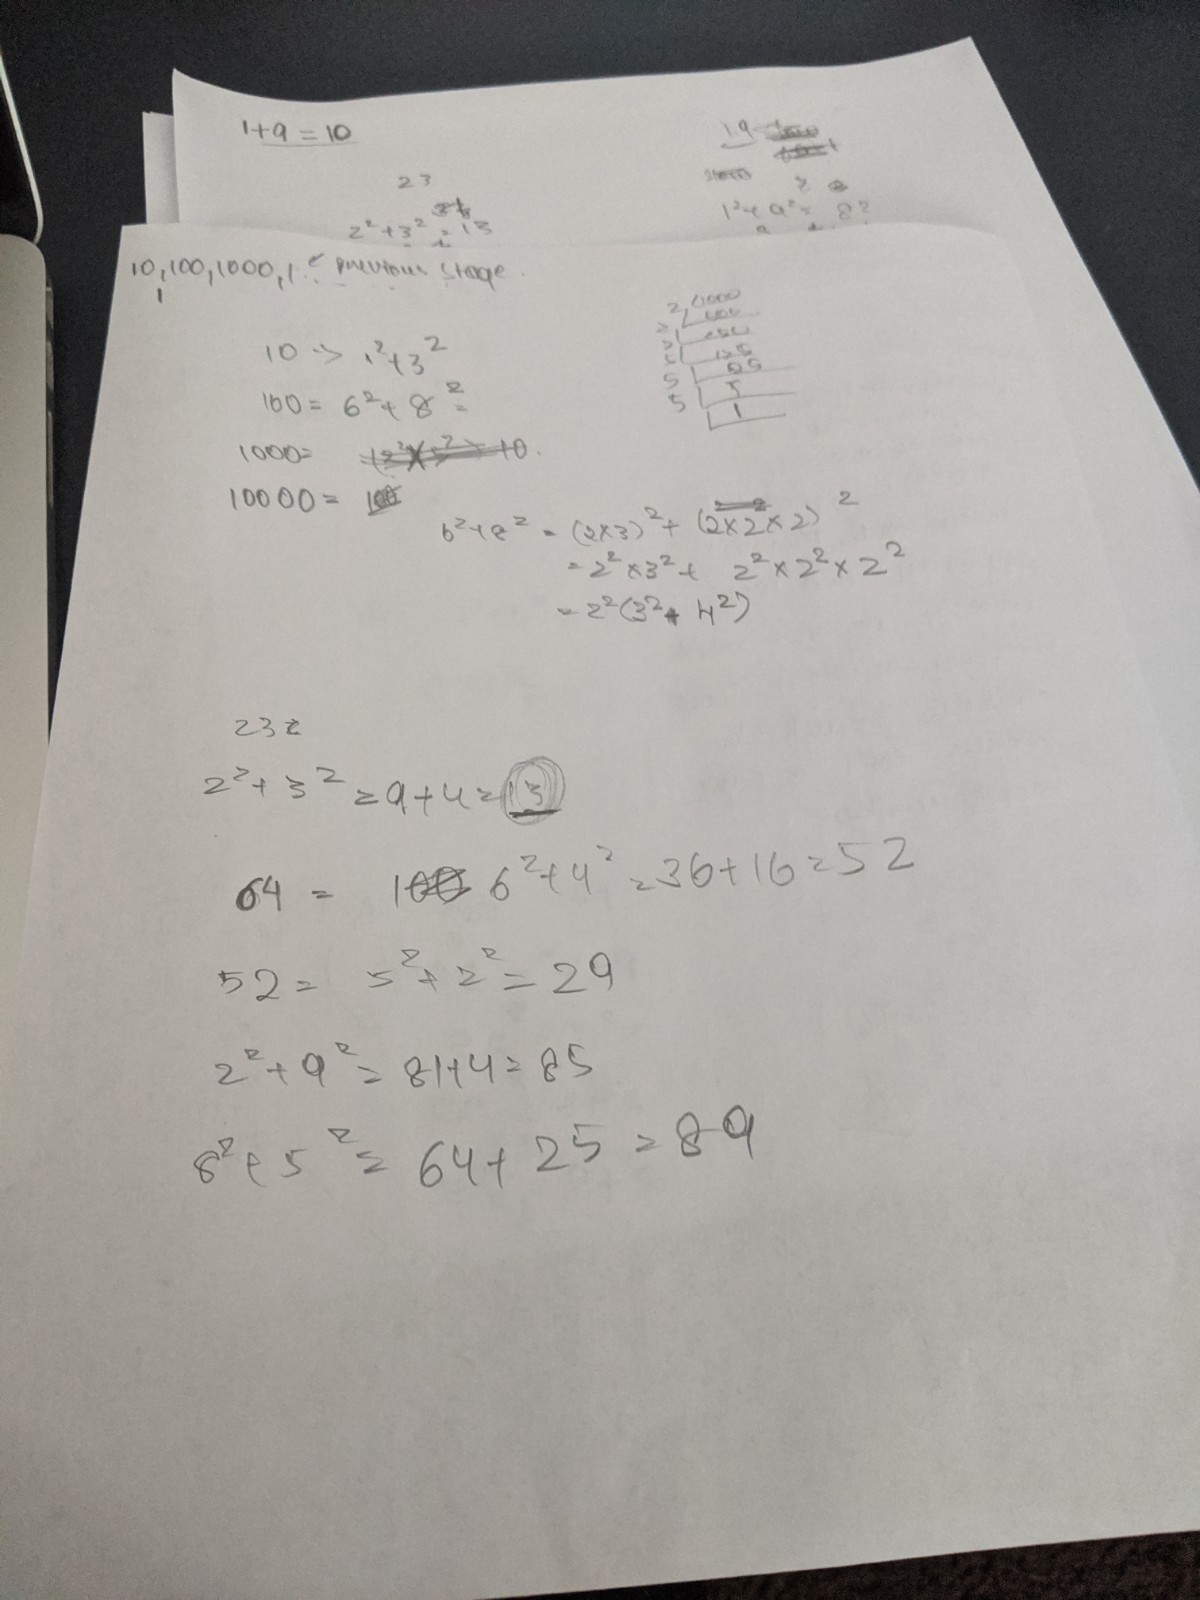 1+9 = 10
19
23
2²+3² = 13
1²+9² = 82
10,100,1000,1 previous stage.
1
10 -> 1²+3²
100 = 6²+8² =
1000=
10000=
2 1000
2 500
2 250
5 125
5 25
5 5
1
6²+8² = (2x3)² + (2x2x2)²
= 2²x3²+ 2²x2²x2²
= 2²(3²+ 4²)
23
2²+3² = 9+4 = 13
64 = 6²+4² = 36+16 = 52
52 = 5²+2² = 29
2²+9² = 81+4 = 85
8²+5² = 64+25 = 89